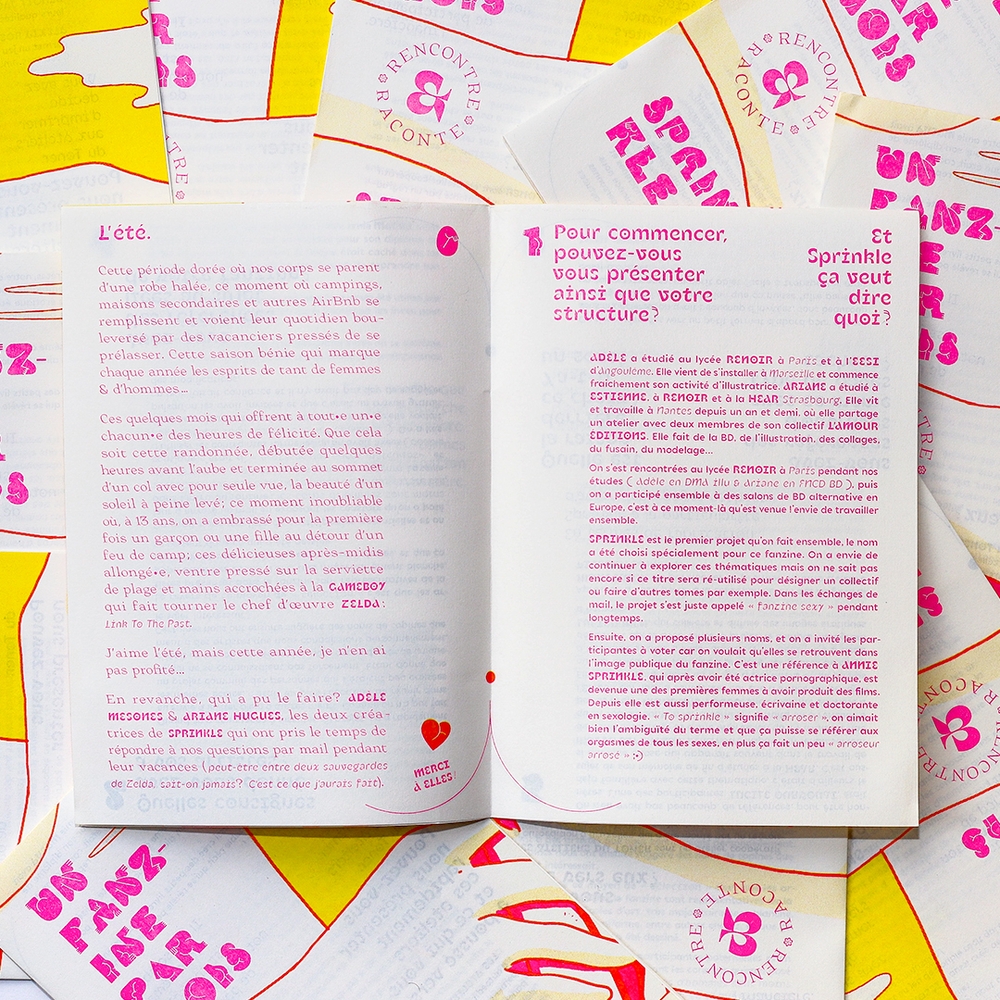 L'été.
Cette période dorée où nos corps se parent
d'une robe halée, ce moment où campings,
maisons secondaires et autres AirBnb se
remplissent et voient leur quotidien bou-
leversé par des vacanciers pressés de se
prélasser. Cette saison bénie qui marque
chaque année les esprits de tant de femmes
& d'hommes...
Ces quelques mois qui offrent à tout•e un•e
chacun•e des heures de félicité. Que cela
soit cette randonnée, débutée quelques
heures avant l'aube et terminée au sommet
d'un col avec pour seule vue, la beauté d'un
soleil à peine levé; ce moment inoubliable
où, à 13 ans, on a embrassé pour la première
fois un garçon ou une fille au détour d'un
feu de camp; ces délicieuses après-midis
allongé•e, ventre pressé sur la serviette
de plage et mains accrochées à la GAMEBOY
qui fait tourner le chef d'œuvre ZELDA:
Link To The Past.
J'aime l'été, mais cette année, je n'en ai
pas profité...
En revanche, qui a pu le faire? ADÈLE
MESONES & ARIANE HUGUES, les deux créa-
trices de SPRINKLE qui ont pris le temps de
répondre à nos questions par mail pendant
leur vacances (peut-être entre deux sauvegardes
de Zelda, sait-on jamais? C'est ce que j'aurais fait).
MERCI
À ELLES!
1
Pour commencer,
pouvez-vous
vous présenter
ainsi que votre
structure?
Et
Sprinkle
ça veut
dire
quoi?
ADÈLE a étudié au lycée RENOIR à Paris et à l'EESI
d'Angoulême. Elle vient de s'installer à Marseille et commence
fraîchement son activité d'illustratrice. ARIANE a étudié à
ESTIENNE, à RENOIR et à la HEAR Strasbourg. Elle vit
et travaille à Nantes depuis un an et demi, où elle partage
un atelier avec deux membres de son collectif L'AMOUR
ÉDITIONS. Elle fait de la BD, de l'illustration, des collages,
du fusain, du modelage...
On s'est rencontrées au lycée RENOIR à Paris pendant nos
études ( Adèle en DMA illu & Ariane en FNCD BD ), puis
on a participé ensemble à des salons de BD alternative en
Europe, c'est à ce moment-là qu'est venue l'envie de travailler
ensemble.
SPRINKLE est le premier projet qu'on fait ensemble, le nom
a été choisi spécialement pour ce fanzine. On a envie de
continuer à explorer ces thématiques mais on ne sait pas
encore si ce titre sera ré-utilisé pour désigner un collectif
ou faire d'autres tomes par exemple. Dans les échanges de
mail, le projet s'est juste appelé « fanzine sexy » pendant
longtemps.
Ensuite, on a proposé plusieurs noms, et on a invité les par-
ticipantes à voter car on voulait qu'elles se retrouvent dans
l'image publique du fanzine. C'est une référence à ANNIE
SPRINKLE, qui après avoir été actrice pornographique, est
devenue une des premières femmes à avoir produit des films.
Depuis elle est aussi performeuse, écrivaine et doctorante
en sexologie. « To sprinkle » signifie « arroser », on aimait
bien l'ambiguïté du terme et que ça puisse se référer aux
orgasmes de tous les sexes, en plus ça fait un peu « arroseur
arrosé » ;)
RENCONTRE
RACONTE
RENCONTRE
RACONTE
SPRIN
KLE
AR
MOIS
UN
FANZ-
RENCONTRE
RACONTE
UN
FANZ-
INE
PAR
MOIS
RENCONTRE
RACONTE